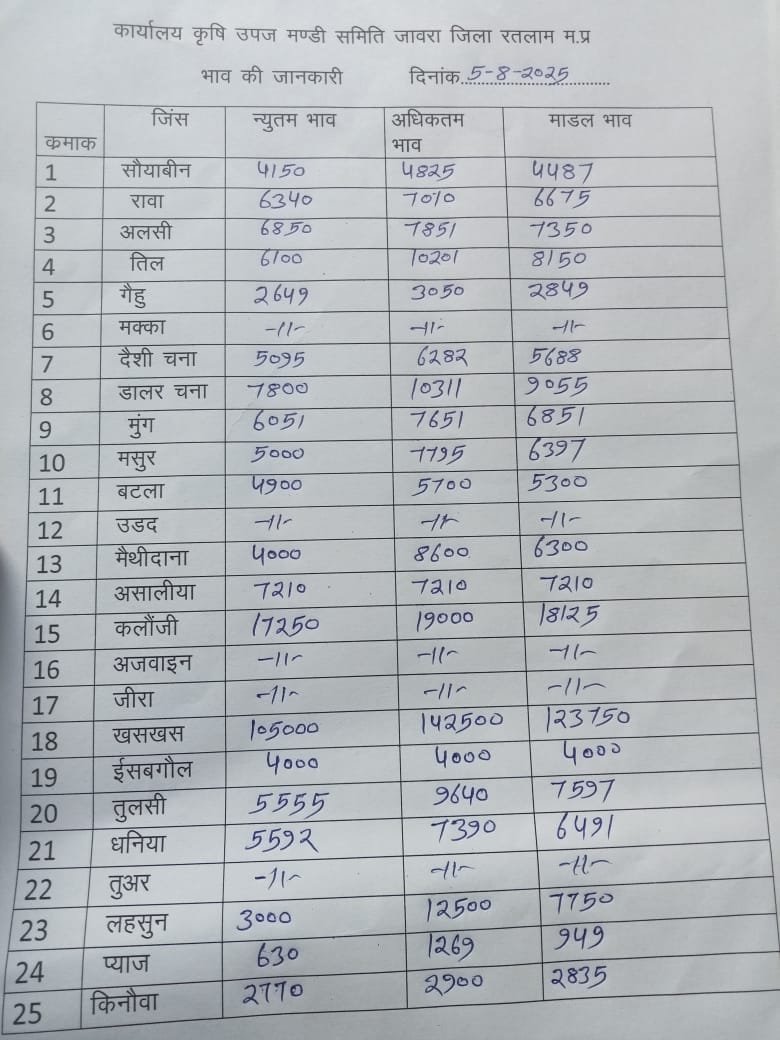 कार्यालय कृषि उपज मण्डी समिति जावरा जिला रतलाम म.प्र
भाव की जानकारी दिनांक..5-8-2025
कमाक जिंस न्युतम भाव अधिकतम भाव माडल भाव
1 सौयाबीन 4150 4825 4487
2 रावा 6340 7010 6675
3 अलसी 6850 7851 7350
4 तिल 6100 10201 8150
5 गैहु 2649 3050 2849
6 मक्का -11- -11- -11-
7 दैशी चना 5095 6282 5688
8 डालर चना 7800 10311 9055
9 मुंग 6051 7651 6851
10 मसुर 5000 7795 6397
11 बटला 4900 5700 5300
12 उडद -11- -11- -11-
13 मैथीदाना 4000 8600 6300
14 असालीया 7210 7210 7210
15 कलौंजी 17250 19000 18125
16 अजवाइन -11- -11- -11-
17 जीरा -11- -11- -11-
18 खसखस 105000 142500 123750
19 ईसबगौल 4000 4000 4000
20 तुलसी 5555 9640 7597
21 धनिया 5592 7390 6491
22 तुअर -11- -11- -11-
23 लहसुन 3000 12500 7750
24 प्याज 630 1269 949
25 किनौवा 2770 2900 2835